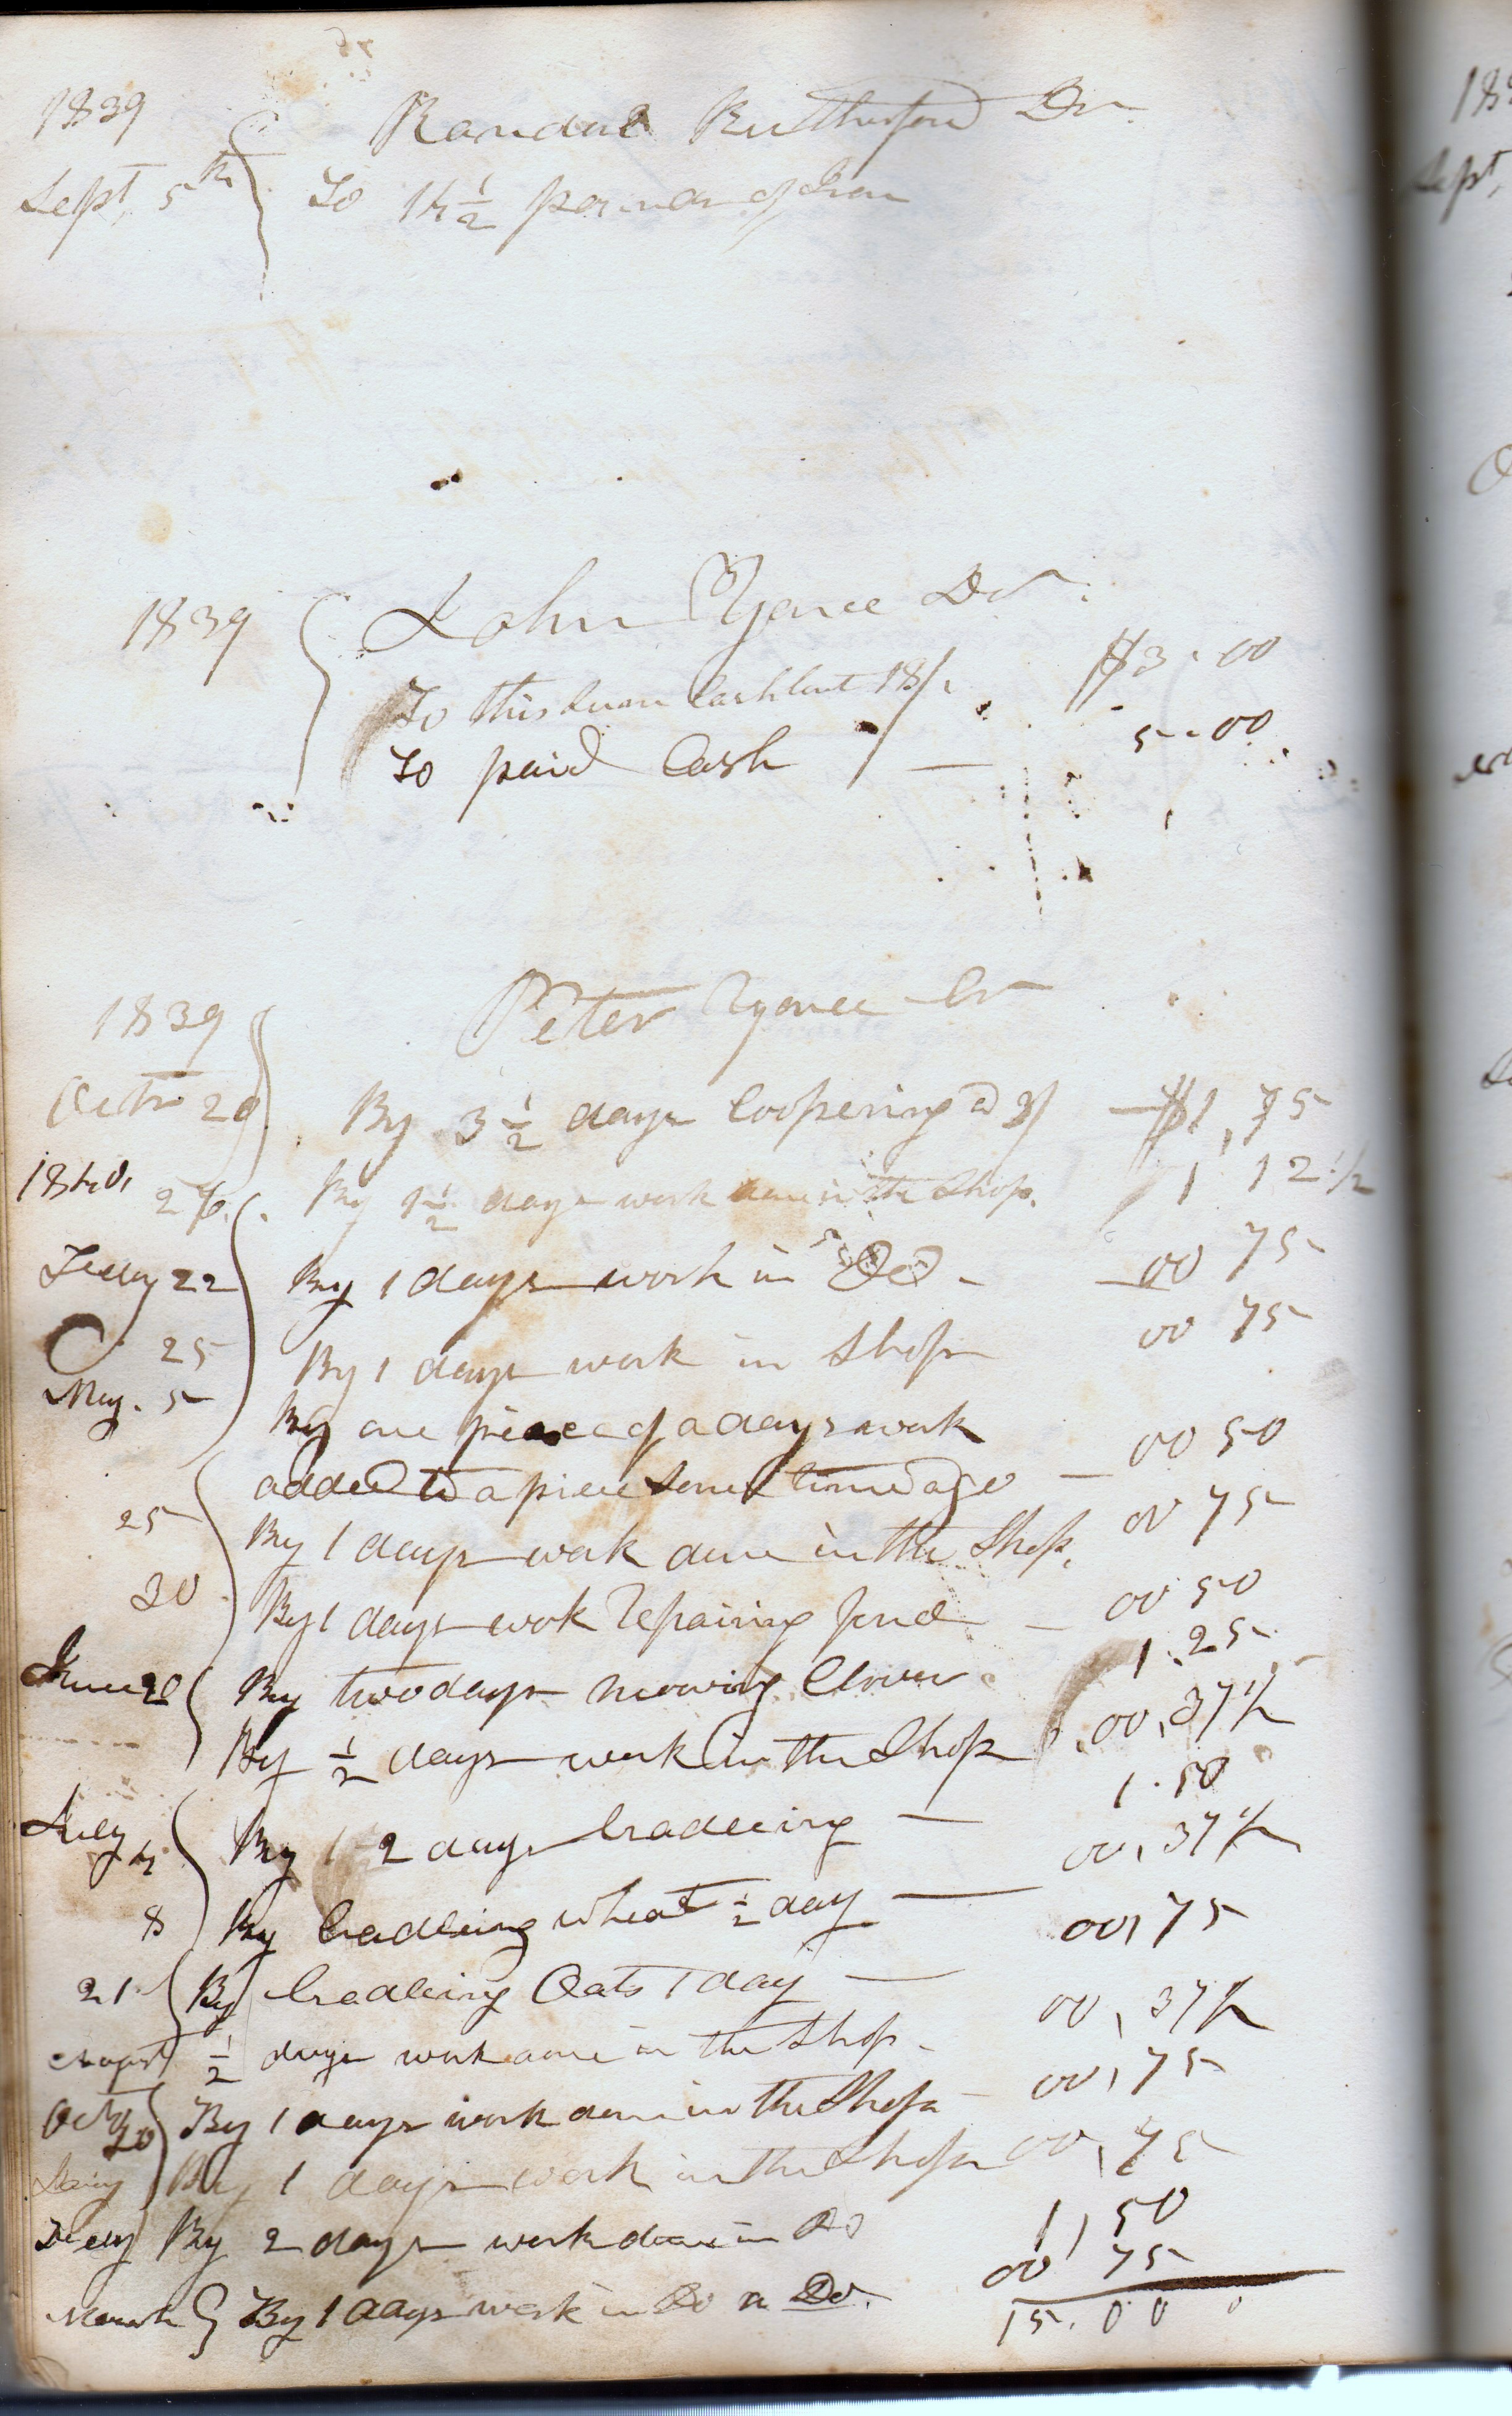 1839 Randal Rutherford Dr.
Sept. 5th To 14 1/2 pounds of Iron
1839 John Yonce Dr.
To this sum Cash lent 18/. $3.00
To paid Cash 5.00
1839 Peter Yonce Cr
Octr 20 By 3 1/2 days Coopering @ 3/ $1,75
1840, 26. By 1 1/2 days work done in the Shop. 1 12 1/2
Feby 22 By 1 days work in Do 00 75
25 By 1 days work in Shop 00 75
May. 5 By one piece of a days work
added to a piece some time ago 00 50
25 By 1 days work done in the Shop. 00 75
30 By 1 days wok Repairing fence 00 50
June 20 By two days mowing Clover 1.25
By 1/2 days work in the Shop 00,37 1/2
July 4 By 2 days Cradleing 1.50
8 By Cradleing wheat 1/2 day 00,37 1/2
21 By Cradleing Oats 1 day 00,75
August 1/2 days work done in the Shop. 00,37 1/2
Octr 20 By 1 days work done in the Shop 00,75
By 1 days work in the Shop 00,75
By 2 days work done in Do 1,50
March By 1 days work in Do Do. 00 75
15.00